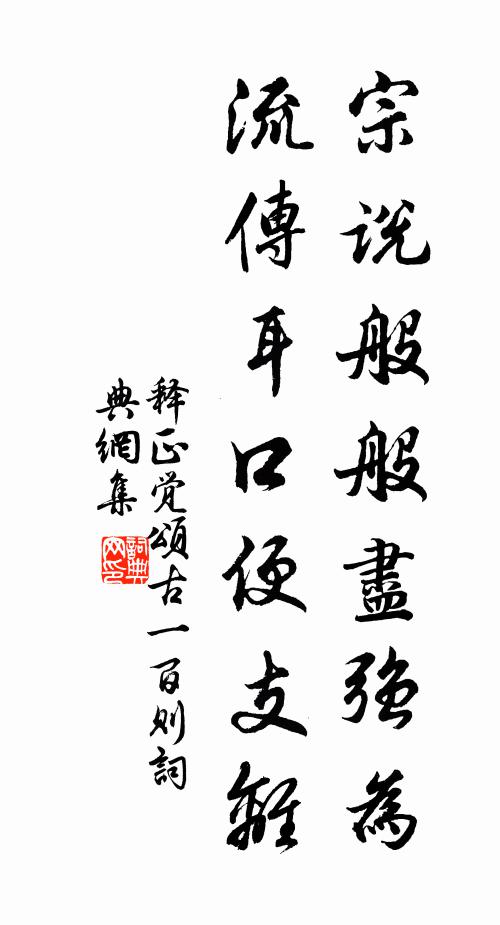 宗說般般盡强為
流傳耳口便支離
释正覚頌古一百则詞
典網集
詞典
网印